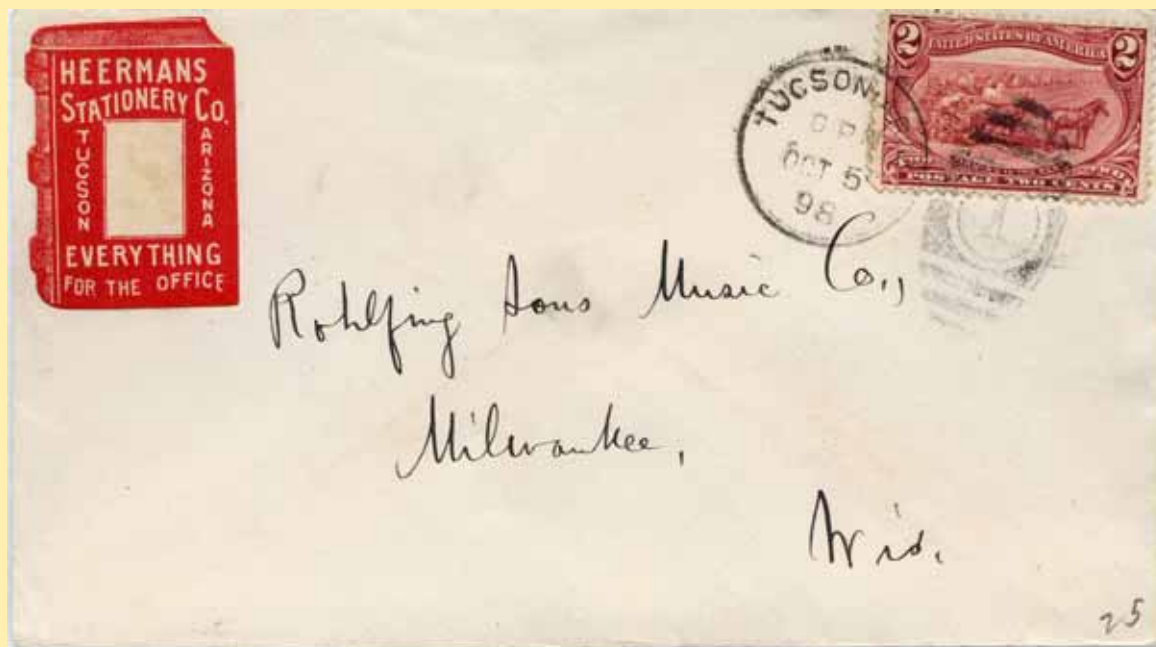 HEERMANS
STATIONERY CO.
TUCSON
ARIZONA
EVERYTHING
FOR THE OFFICE
TUCSON
OCT 5
98
2
UNITED STATES OF AMERICA
2
POSTAGE TWO CENTS
1
Rohlfing Sons Music Co.,
Milwaukee,
Wis.
25